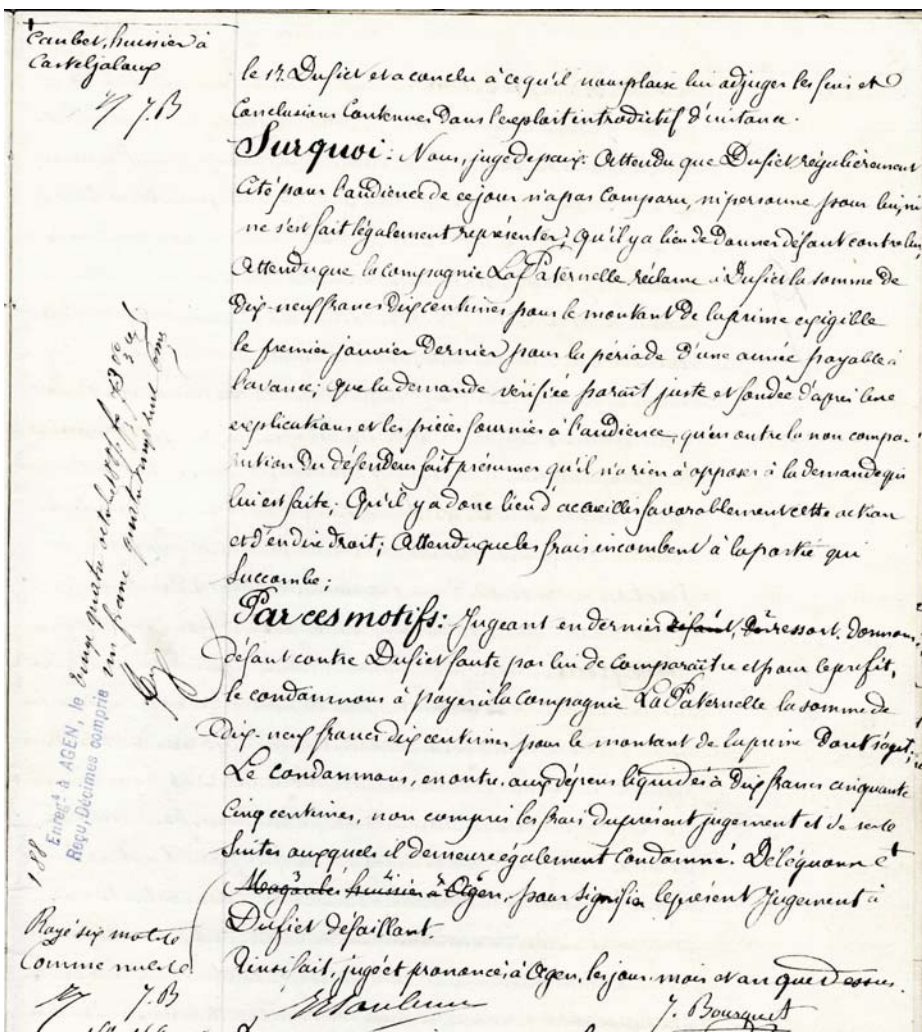 Caubet, huissier à
Casteljaloux
J.B
le Sr. Dufiet et a conclu à ce qu'il nous plaise lui adjuger les fins et
Conclusions Contenues Dans l'exploit introductif d'instance.
Surquoi: Nous, juge de paix: Attendu que Dufiet régulièrement
Cité pour l'audience de ce jour n'a pas Comparu, ni personne pour lui, ni
ne s'est fait légalement représenter; Qu'il y a lieu de Donner défaut contre lui,
Attendu que la Compagnie La Paternelle réclame à Dufiet la somme de
Dix-neuf francs dix centimes pour le montant de la prime exigible
le premier janvier Dernier pour la période d'une année payable à
l'avance; que la demande vérifiée parait juste et fondée d'après les
explications et les pièces fournies à l'audience, qu'en outre la non compa-
rution Du défendeur fait présumer qu'il n'a rien à opposer à la demande qui
lui est faite; Qu'il y a donc lieu d'accueillir favorablement cette action
et d'en dire Droit; Attendu que les frais incombent à la partie qui
Succombe;
Par ces motifs: Jugeant en dernier défaut, ressort, Donnons
défaut contre Dufiet faute par lui de Comparaître et pour le profit,
le condamnons à payer à la Compagnie La Paternelle la somme de
Dix-neuf francs dix centimes pour le montant de la prime Dont s'agit;
Le condamnons, en outre, aux dépens liquidés à Dix francs cinquante
Cinq centimes, non compris les frais du présent jugement et de ses
Suites auxquels il demeure également Condamné. Déléguons
huissier à Agen, pour signifier le présent Jugement à
Dufiet défaillant.
Ainsi fait, jugé et prononcé à Agen, les jour, mois et an que Dessus.
J. Bousquet
188 Enregt à AGEN, le vingt quatre
Reçu, Décimes compris un franc quatre vingt huit cmes
Rayé six mots
Comme nuls
J.B